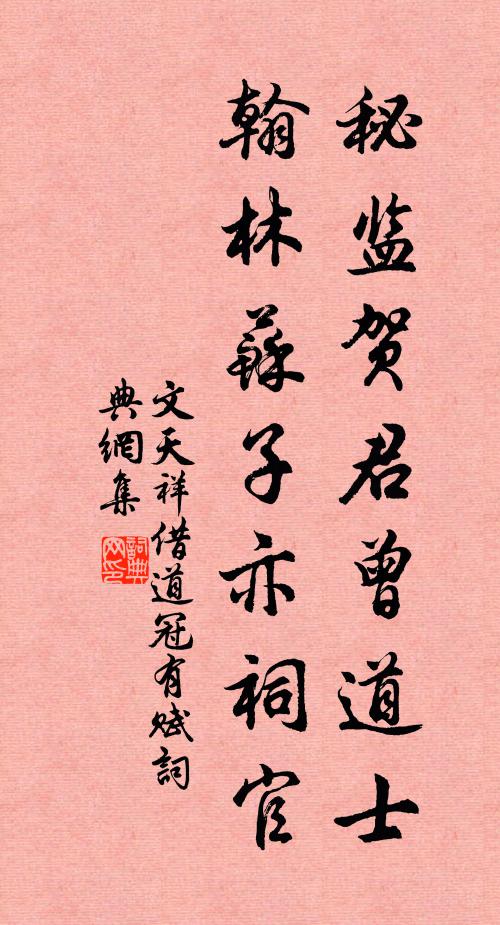 秘监贺君曾道士
翰林蘇子亦祠官
文天祥借道冠有赋詞
典網集
詞典网印